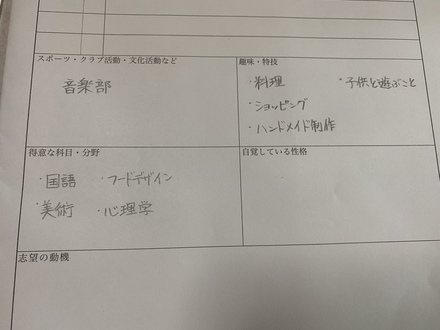 スポーツ・クラブ活動・文化活動など
音楽部
趣味・特技
・料理 ・子供と遊ぶこと
・ショッピング
・ハンドメイド制作
得意な科目・分野
・国語 ・フードデザイン
・美術 ・心理学
自覚している性格
志望の動機